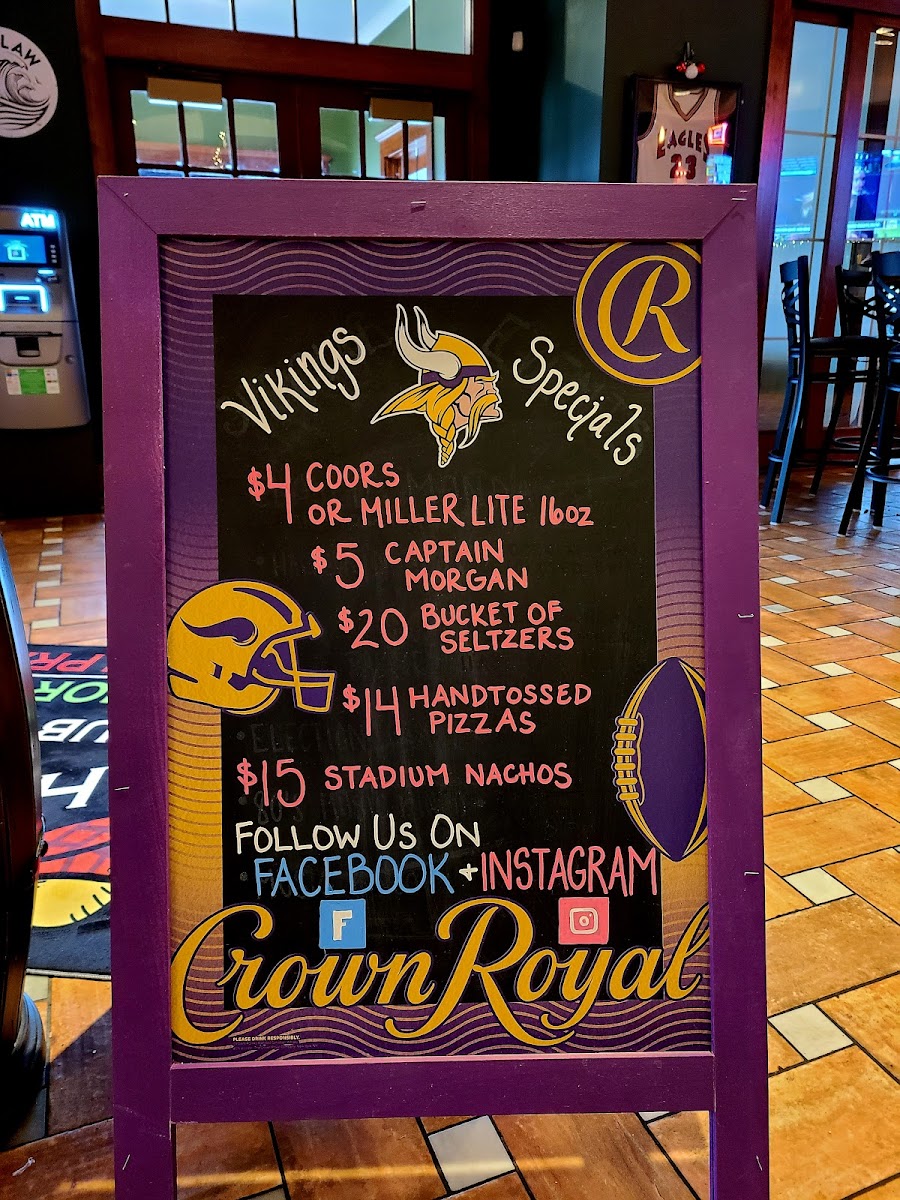 LAW
ATM
EAGLES
23
CR
Vikings Specials
$4 COORS
OR MILLER LITE 16oz
$5 CAPTAIN
MORGAN
$20 BUCKET OF
SELTZERS
$14 HANDTOSSED
PIZZAS
$15 STADIUM NACHOS
FOLLOW US ON
FACEBOOK + INSTAGRAM
F
Crown Royal
PLEASE DRINK RESPONSIBLY.